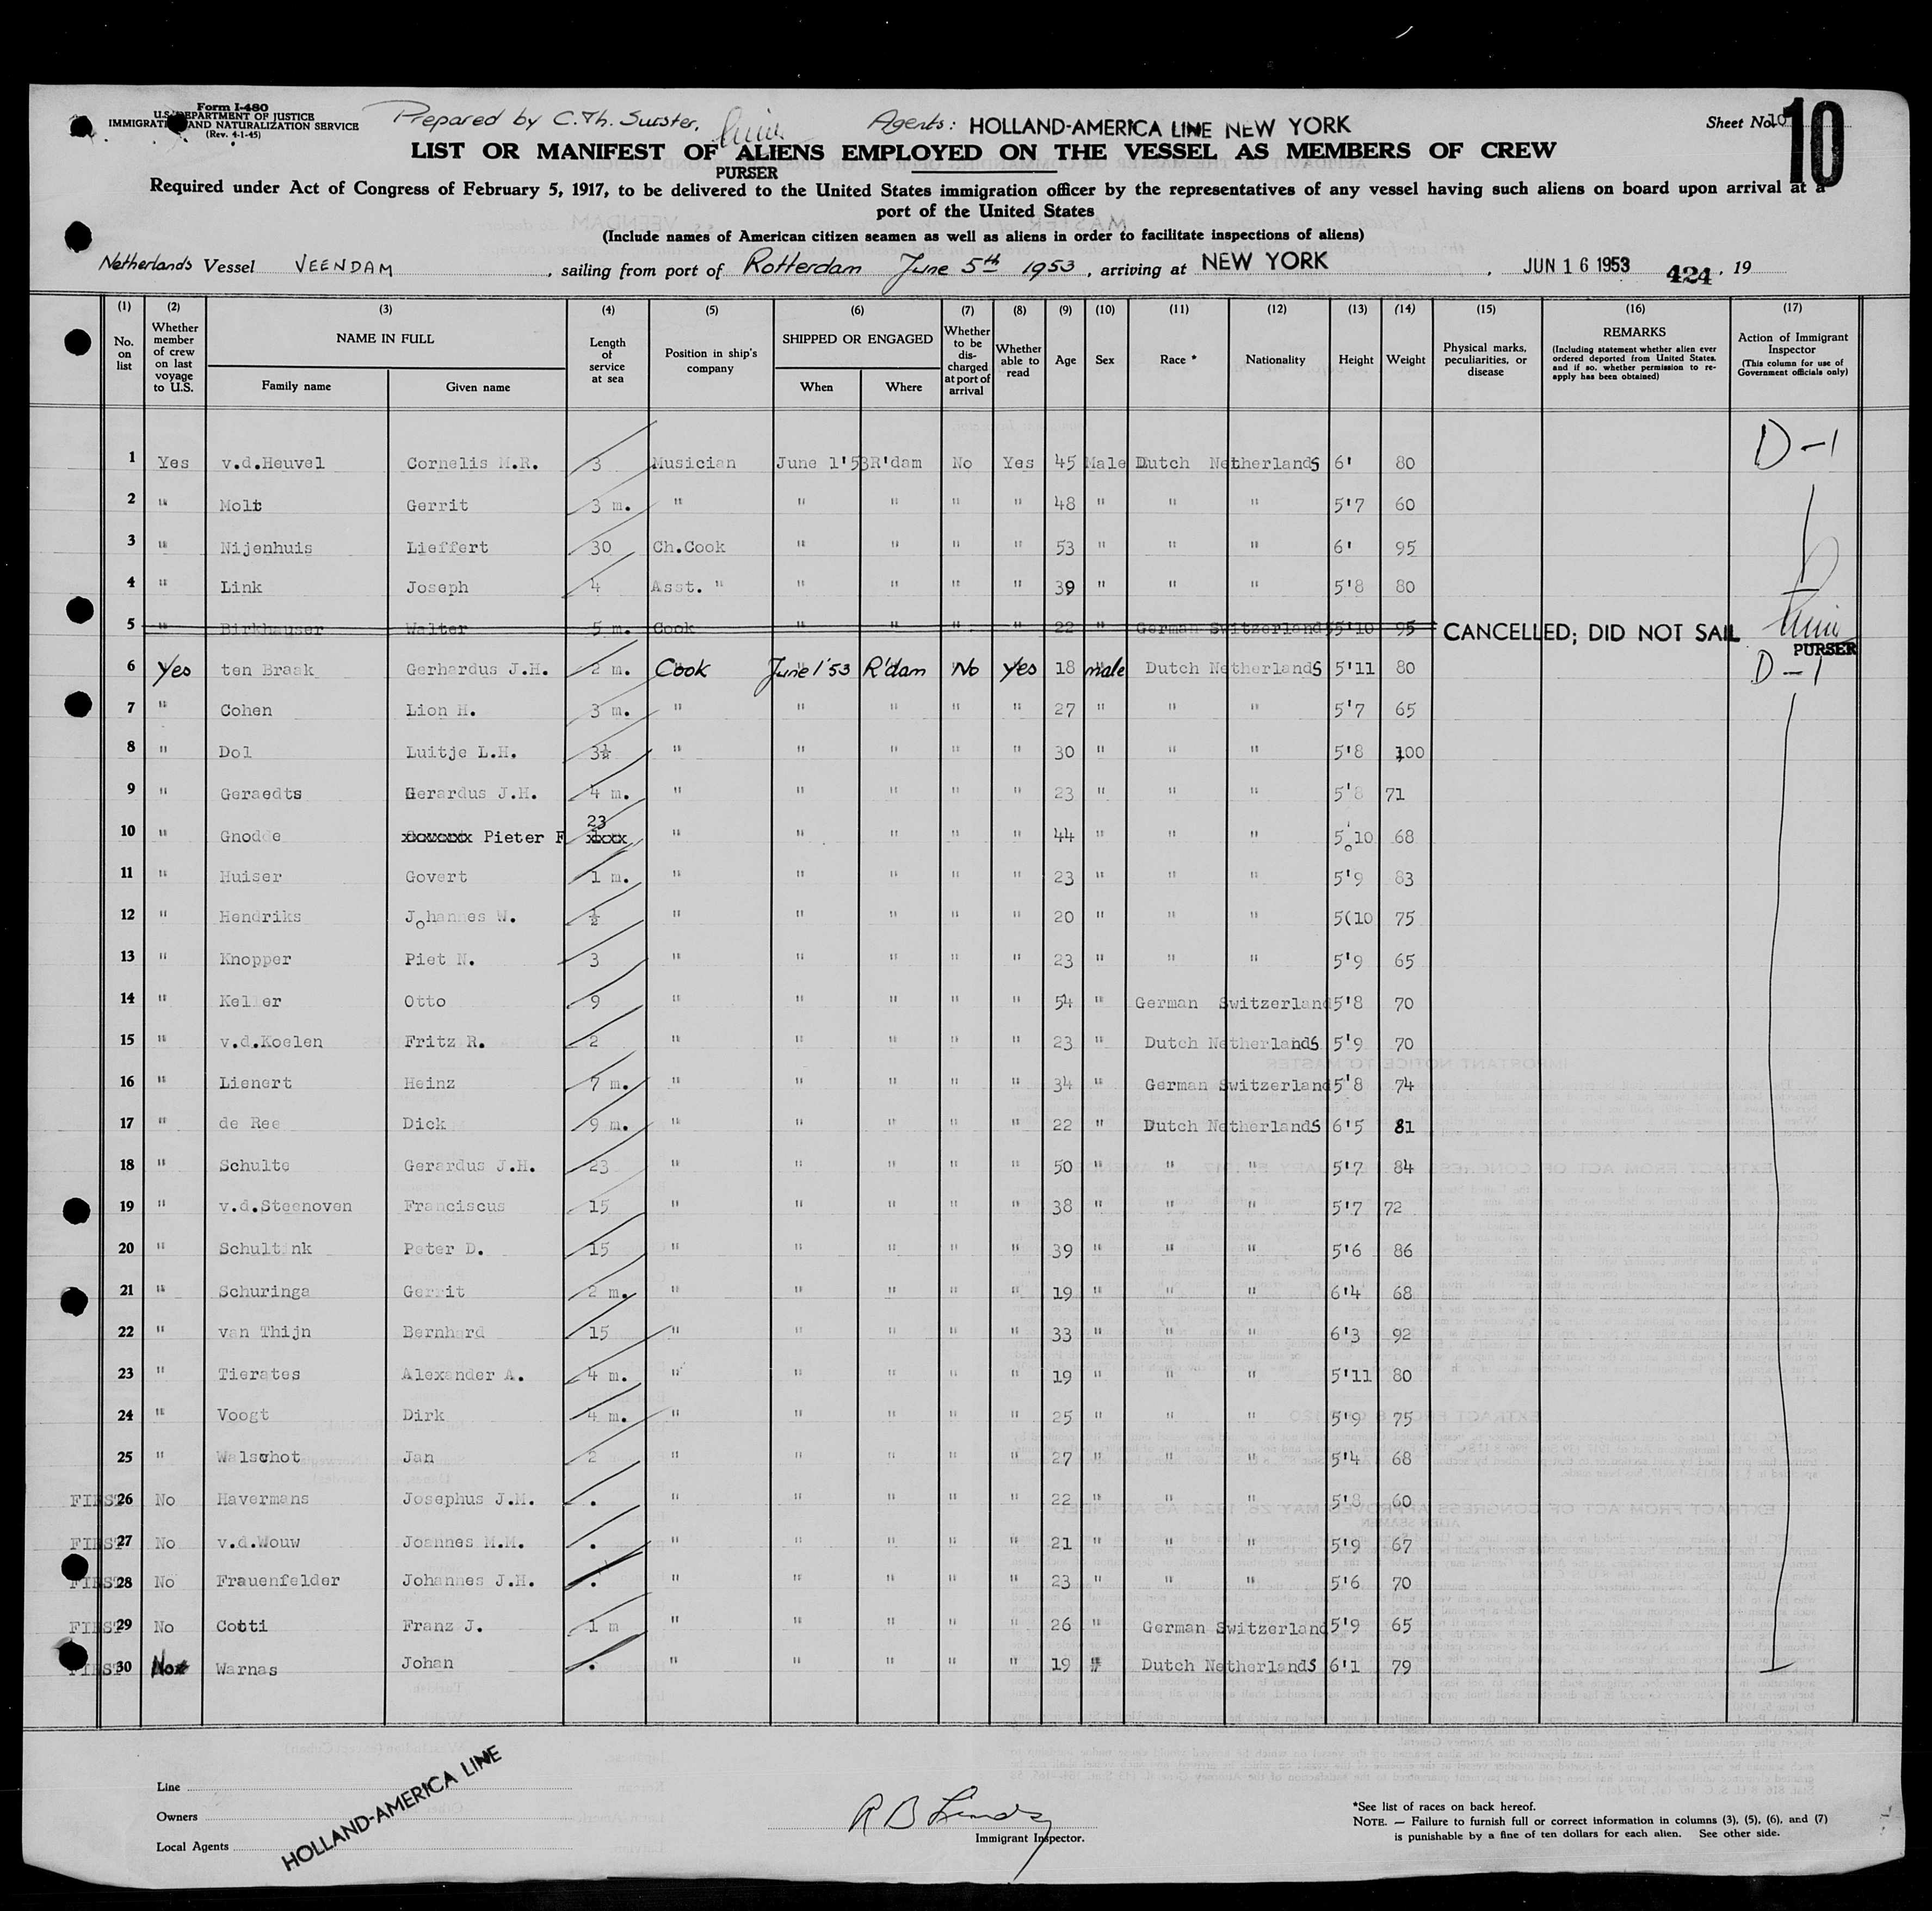 Form I-480
U.S. DEPARTMENT OF JUSTICE
IMMIGRATION AND NATURALIZATION SERVICE
(Rev. 4-1-45)
Prepared by C.Th. Surster,
Agents: HOLLAND-AMERICA LINE NEW YORK
Sheet No. 10
10
LIST OR MANIFEST OF ALIENS EMPLOYED ON THE VESSEL AS MEMBERS OF CREW
PURSER
Required under Act of Congress of February 5, 1917, to be delivered to the United States immigration officer by the representatives of any vessel having such aliens on board upon arrival at a
port of the United States
(Include names of American citizen seamen as well as aliens in order to facilitate inspections of aliens)
Netherlands Vessel VEENDAM, sailing from port of Rotterdam June 5th 1953, arriving at NEW YORK, JUN 16 1953 424, 19
(1) No. on list (2) Whether member of crew on last voyage to U.S. (3) NAME IN FULL Family name Given name (4) Length of service at sea (5) Position in ship's company (6) SHIPPED OR ENGAGED When Where (7) Whether to be discharged at port of arrival (8) Whether able to read (9) Age (10) Sex (11) Race * (12) Nationality (13) Height (14) Weight (15) Physical marks, peculiarities, or disease (16) REMARKS (Including statement whether alien ever ordered deported from United States, and if so, whether permission to re-apply has been obtained) (17) Action of Immigrant Inspector (This column for use of Government officials only)
1 Yes v.d.Heuvel Cornelis M.R. 3 Musician June 1'53 R'dam No Yes 45 Male Dutch Netherlands 6' 80 D-1
2 " Molt Gerrit 3 m. " " " " " 48 " " " 5'7 60
3 " Nijenhuis Lieffert 30 Ch.Cook " " " " 53 " " " 6' 95
4 " Link Joseph 4 Asst. " " " " " 39 " " " 5'8 80
5 " Birkhauser Walter 5 m. Cook " " " " 22 " German Switzerland 5'10 95 CANCELLED; DID NOT SAIL PURSER
6 Yes ten Braak Gerhardus J.H. 2 m. Cook June 1'53 R'dam No Yes 18 male Dutch Netherlands 5'11 80 D-1
7 " Cohen Lion H. 3 m. " " " " " 27 " " " 5'7 65
8 " Dol Luitje L.H. 3½ " " " " " 30 " " " 5'8 100
9 " Geraedts Gerardus J.H. 4 m. " " " " " 23 " " " 5'8 71
10 " Gnodde xxxxxxx Pieter F 23 xxxx " " " " " 44 " " " 5'10 68
11 " Huiser Govert 1 m. " " " " " 23 " " " 5'9 83
12 " Hendriks Johannes W. ½ " " " " " 20 " " " 5(10 75
13 " Knopper Piet N. 3 " " " " " 23 " " " 5'9 65
14 " Keller Otto 9 " " " " " 54 " German Switzerland 5'8 70
15 " v.d.Koelen Fritz R. 2 " " " " " 23 " Dutch Netherlands 5'9 70
16 " Lienert Heinz 7 m. " " " " " 34 " German Switzerland 5'8 74
17 " de Ree Dick 9 m. " " " " " 22 " Dutch Netherlands 6'5 81
18 " Schulte Gerardus J.H. 23 " " " " " 50 " " " 5'7 84
19 " v.d.Steenoven Franciscus 15 " " " " " 38 " " " 5'7 72
20 " Schultink Peter D. 15 " " " " " 39 " " " 5'6 86
21 " Schuringa Gerrit 2 m. " " " " " 19 " " " 6'4 68
22 " van Thijn Bernhard 15 " " " " " 33 " " " 6'3 92
23 " Tierates Alexander A. 4 m. " " " " " 19 " " " 5'11 80
24 " Voogt Dirk 4 m. " " " " " 25 " " " 5'9 75
25 " Walschot Jan 2 " " " " " 27 " " " 5'4 68
FIRST 26 No Havermans Josephus J.M. . " " " " " 22 " " " 5'8 60
FIRST 27 No v.d.Wouw Joannes M.M. . " " " " " 21 " " " 5'9 67
FIRST 28 No Frauenfelder Johannes J.H. . " " " " " 23 " " " 5'6 70
FIRST 29 No Cotti Franz J. 1 m " " " " " 26 " German Switzerland 5'9 65
FIRST 30 No Warnas Johan . " " " " " 19 " Dutch Netherlands 6'1 79
Line
Owners
Local Agents
HOLLAND-AMERICA LINE
Immigrant Inspector.
*See list of races on back hereof.
NOTE. — Failure to furnish full or correct information in columns (3), (5), (6), and (7)
is punishable by a fine of ten dollars for each alien. See other side.